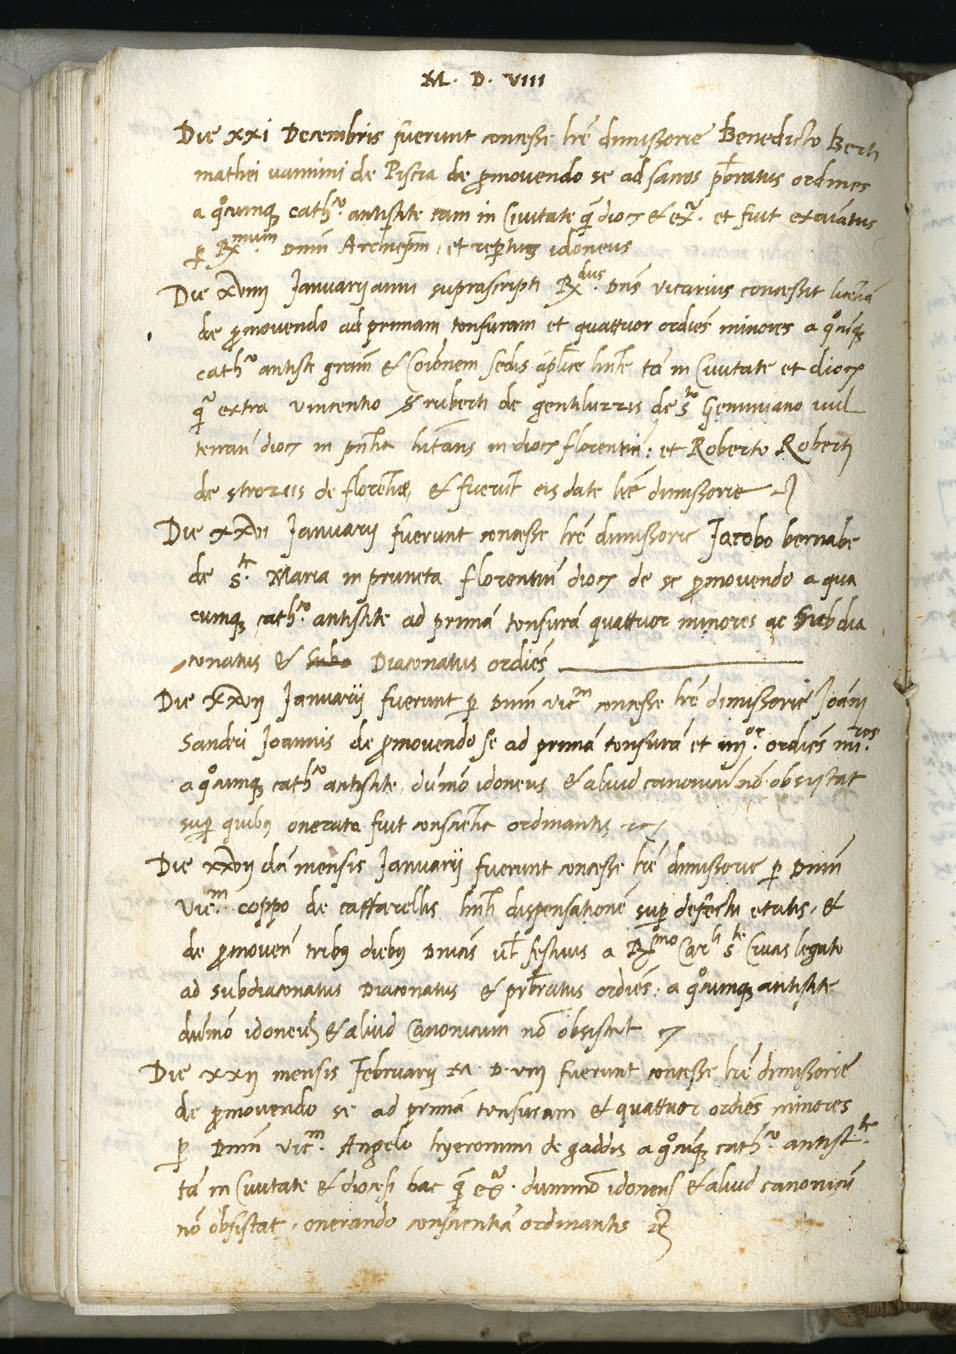 M. D. VIII
Die xxi Decembris fuerunt concesse lrē dimissorie Benedicto Berti
mathei vannini de Piscia de ꝓmovendo se ad sacros pb̄ratus ordines
a qͦcumqꝫ cathᶜᵒ antistite tam in Civitate qͣ̄ dioc & exͣ. et fuit exa͞iatus
ꝑ Rᵐᵘᵐ Dnm̄ Archiepm̄, et repertus idoneus
Die xviiii Januarij anni suprascripti Rᵈᵘˢ. Dn̄s vicarius concessit licentiā
de ꝓmovendo ad primam tonsuram et quattuor ordiēs minores a qͦcūqꝫ
cathᶜᵒ antiste gram̄ & Coīonem sedis aplice hn̄te tā in Civitate et dioc
qͣ̄ extra Vincentio ruberti de gentiluzzis de sᵗᵒ Geminiano vul
terran̄ dioc in pn̄t hītans in dioc florentin̄: et Roberto Roberti
de strozis de florētia, & fuerūt eis date lrē dimissorie
Die xxvi Januarij fuerunt concesse lrē dimissorie Jacobo bernabe
de sᵗᵉ Maria in pruneta florentin̄ dioc de se ꝓmovendo a qua
cumqꝫ cathᶜᵒ antistite ad primā tonsurā quattuor minores ac Subdia
conatus & Subo Diaconatus ordiēs
Die xxvii Januarij fuerunt ꝑ Dnm̄ vicᵐ concesse lrē dimissorie Joāni
Sandri Joannis de ꝓmovendo se ad primā tonsurā et iiijᵒʳ. ordiēs miʳᵉˢ.
a qͦcumqꝫ cathᶜᵒ antistite, dūmō idoneus & aliud canonicū nō obsistat
suꝑ quibꝫ onerata fuit consciētia ordinantis
Die xxvii dc̄i mensis Januarij fuerunt concesse lrē dimissorie ꝑ Dnm̄
Vicᵐ. coppo de caffarellis hn̄ti dispensationē suꝑ defectu etatis, &
de ꝓmovēn tribꝫ diebꝫ Dnicis ut̄ festivis a Rᵐᵒ Carˡⁱ sᵗᵉ Crucis legato
ad subdiaconatus Diaconatus & prb̄ratus ordiēs: a qͦcumqꝫ antistite
dūmō idoneus & aliud Canonicum nō obsistat
Die xxij mensis Februarij M. D. VIII fuerunt concesse lrē dimissorie
de ꝓmovendo se ad primā tonsuram & quattuor ordiēs minores
ꝑ Dnm̄ vicᵐ. Angelo hyeronimi de gaddis a qͦcūqꝫ cathᶜᵒ antistᵗᵉ
tā in Civitate & diocesi hac qͣ̄ exͣ. dummō idoneus & aliud canonicū
nō obsistat, onerando conscientiā ordinantis